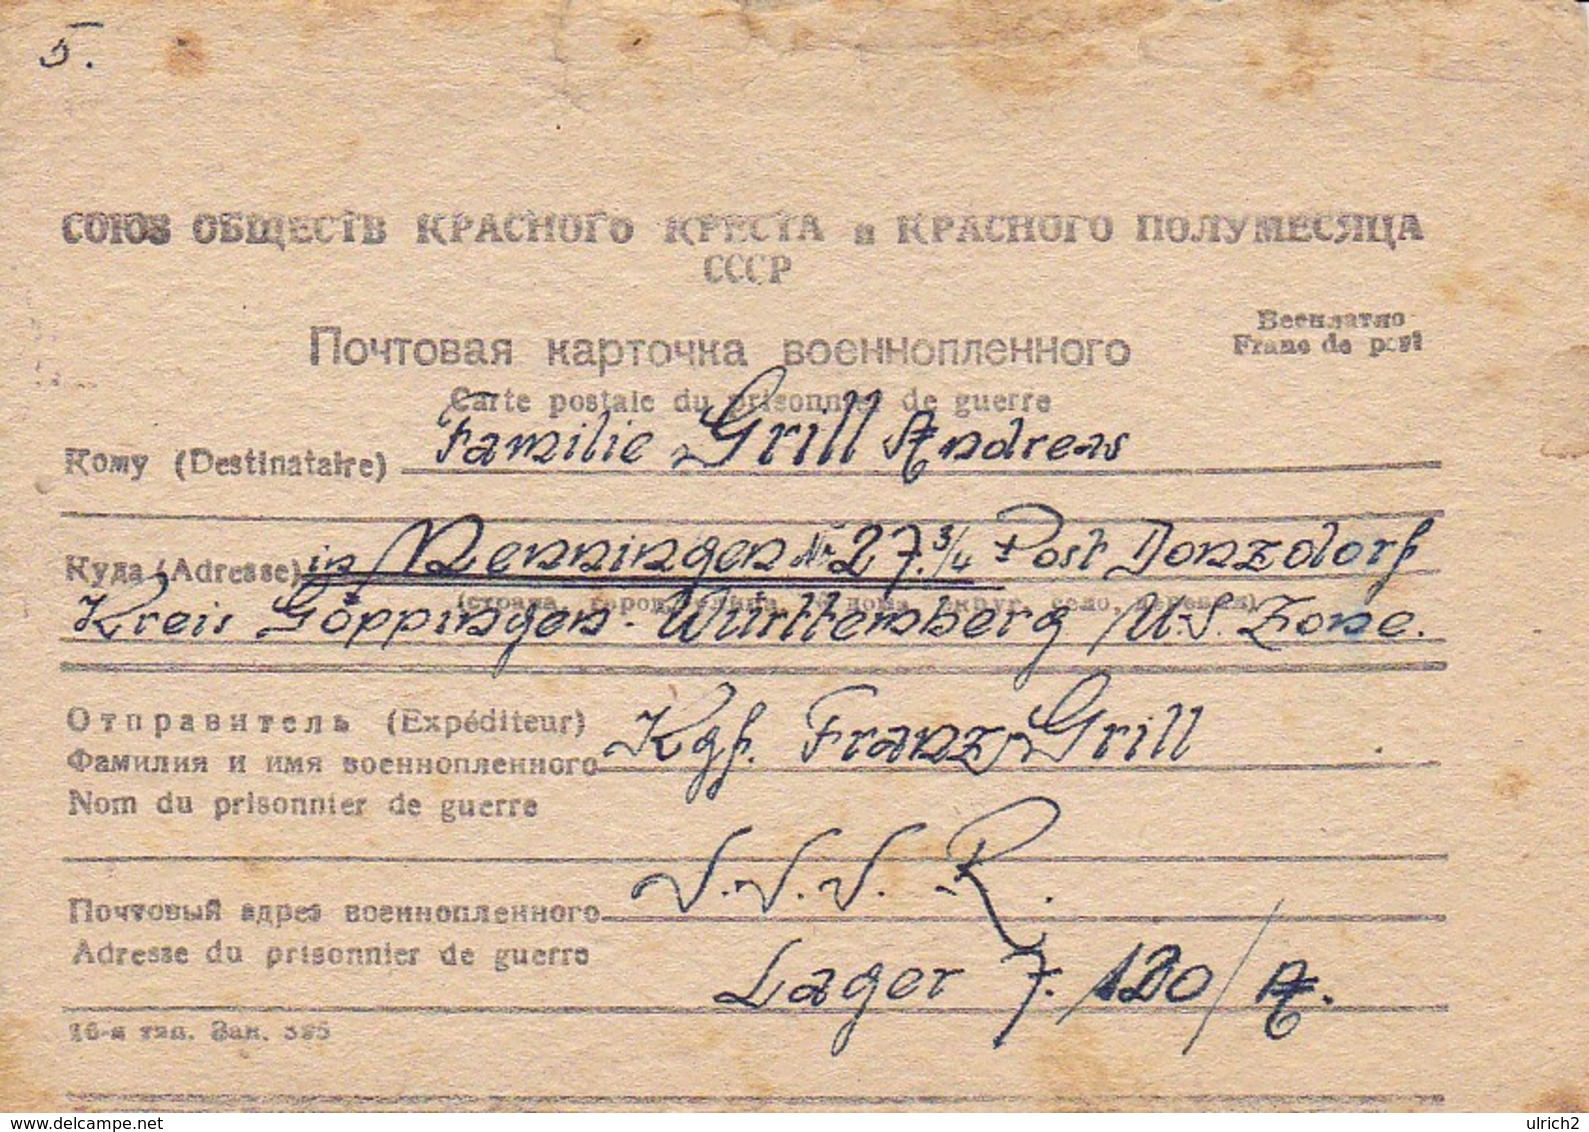 5.
СОЮЗ ОБЩЕСТВ КРАСНОГО КРЕСТА и КРАСНОГО ПОЛУМЕСЯЦА
СССР
Почтовая карточка военнопленного
Бесплатно
Franc de port
Carte postale du prisonnier de guerre
Кому (Destinataire) Familie Grill Andreas
Куда (Adresse) in Nenningen Nr 27.3/4 Post Donzdorf
(страна, город, улица, № дома, округ, село, деревня)
Kreis Göppingen-Württemberg U.S. Zone.
Отправитель (Expéditeur)
Фамилия и имя военнопленного Kgf. Franz Grill
Nom du prisonnier de guerre
S.S.S.R.
Почтовый адрес военнопленного
Adresse du prisonnier de guerre
Lager 7. /120/A.
16-я тип. Зак. 325
delcampe.net
ulrich2